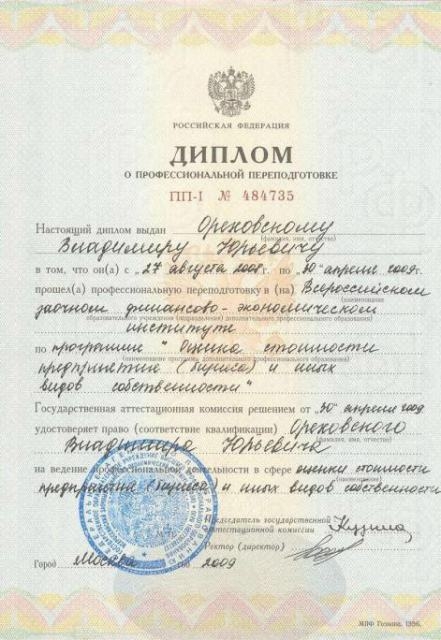 РОССИЙСКАЯ ФЕДЕРАЦИЯ
ДИПЛОМ
О ПРОФЕССИОНАЛЬНОЙ ПЕРЕПОДГОТОВКЕ
ПП-I № 484735
Настоящий диплом выдан Ореховскому
(фамилия, имя, отчество)
Владимиру Юрьевичу
в том, что он(а) с „27" августа 2008г. по „30" апреля 2009г.
прошел(а) профессиональную переподготовку в (на) Всероссийском
(наименование
заочном финансово-экономическом
образовательного учреждения (подразделения) дополнительного профессионального образования)
институте
по программе "Оценка стоимости
(наименование программы дополнительного профессионального образования)
предприятия (бизнеса) и иных
видов собственности"
Государственная аттестационная комиссия решением от „30" апреля 2009
удостоверяет право (соответствие квалификации) Ореховского
(фамилия, имя, отчество)
Владимира Юрьевича
на ведение профессиональной деятельности в сфере оценки стоимости
(наименование)
предприятия (бизнеса) и иных видов собственности
Председатель государственной
аттестационной комиссии
Ректор (директор)
Город Москва 2009
МПФ Гознака. 1996.